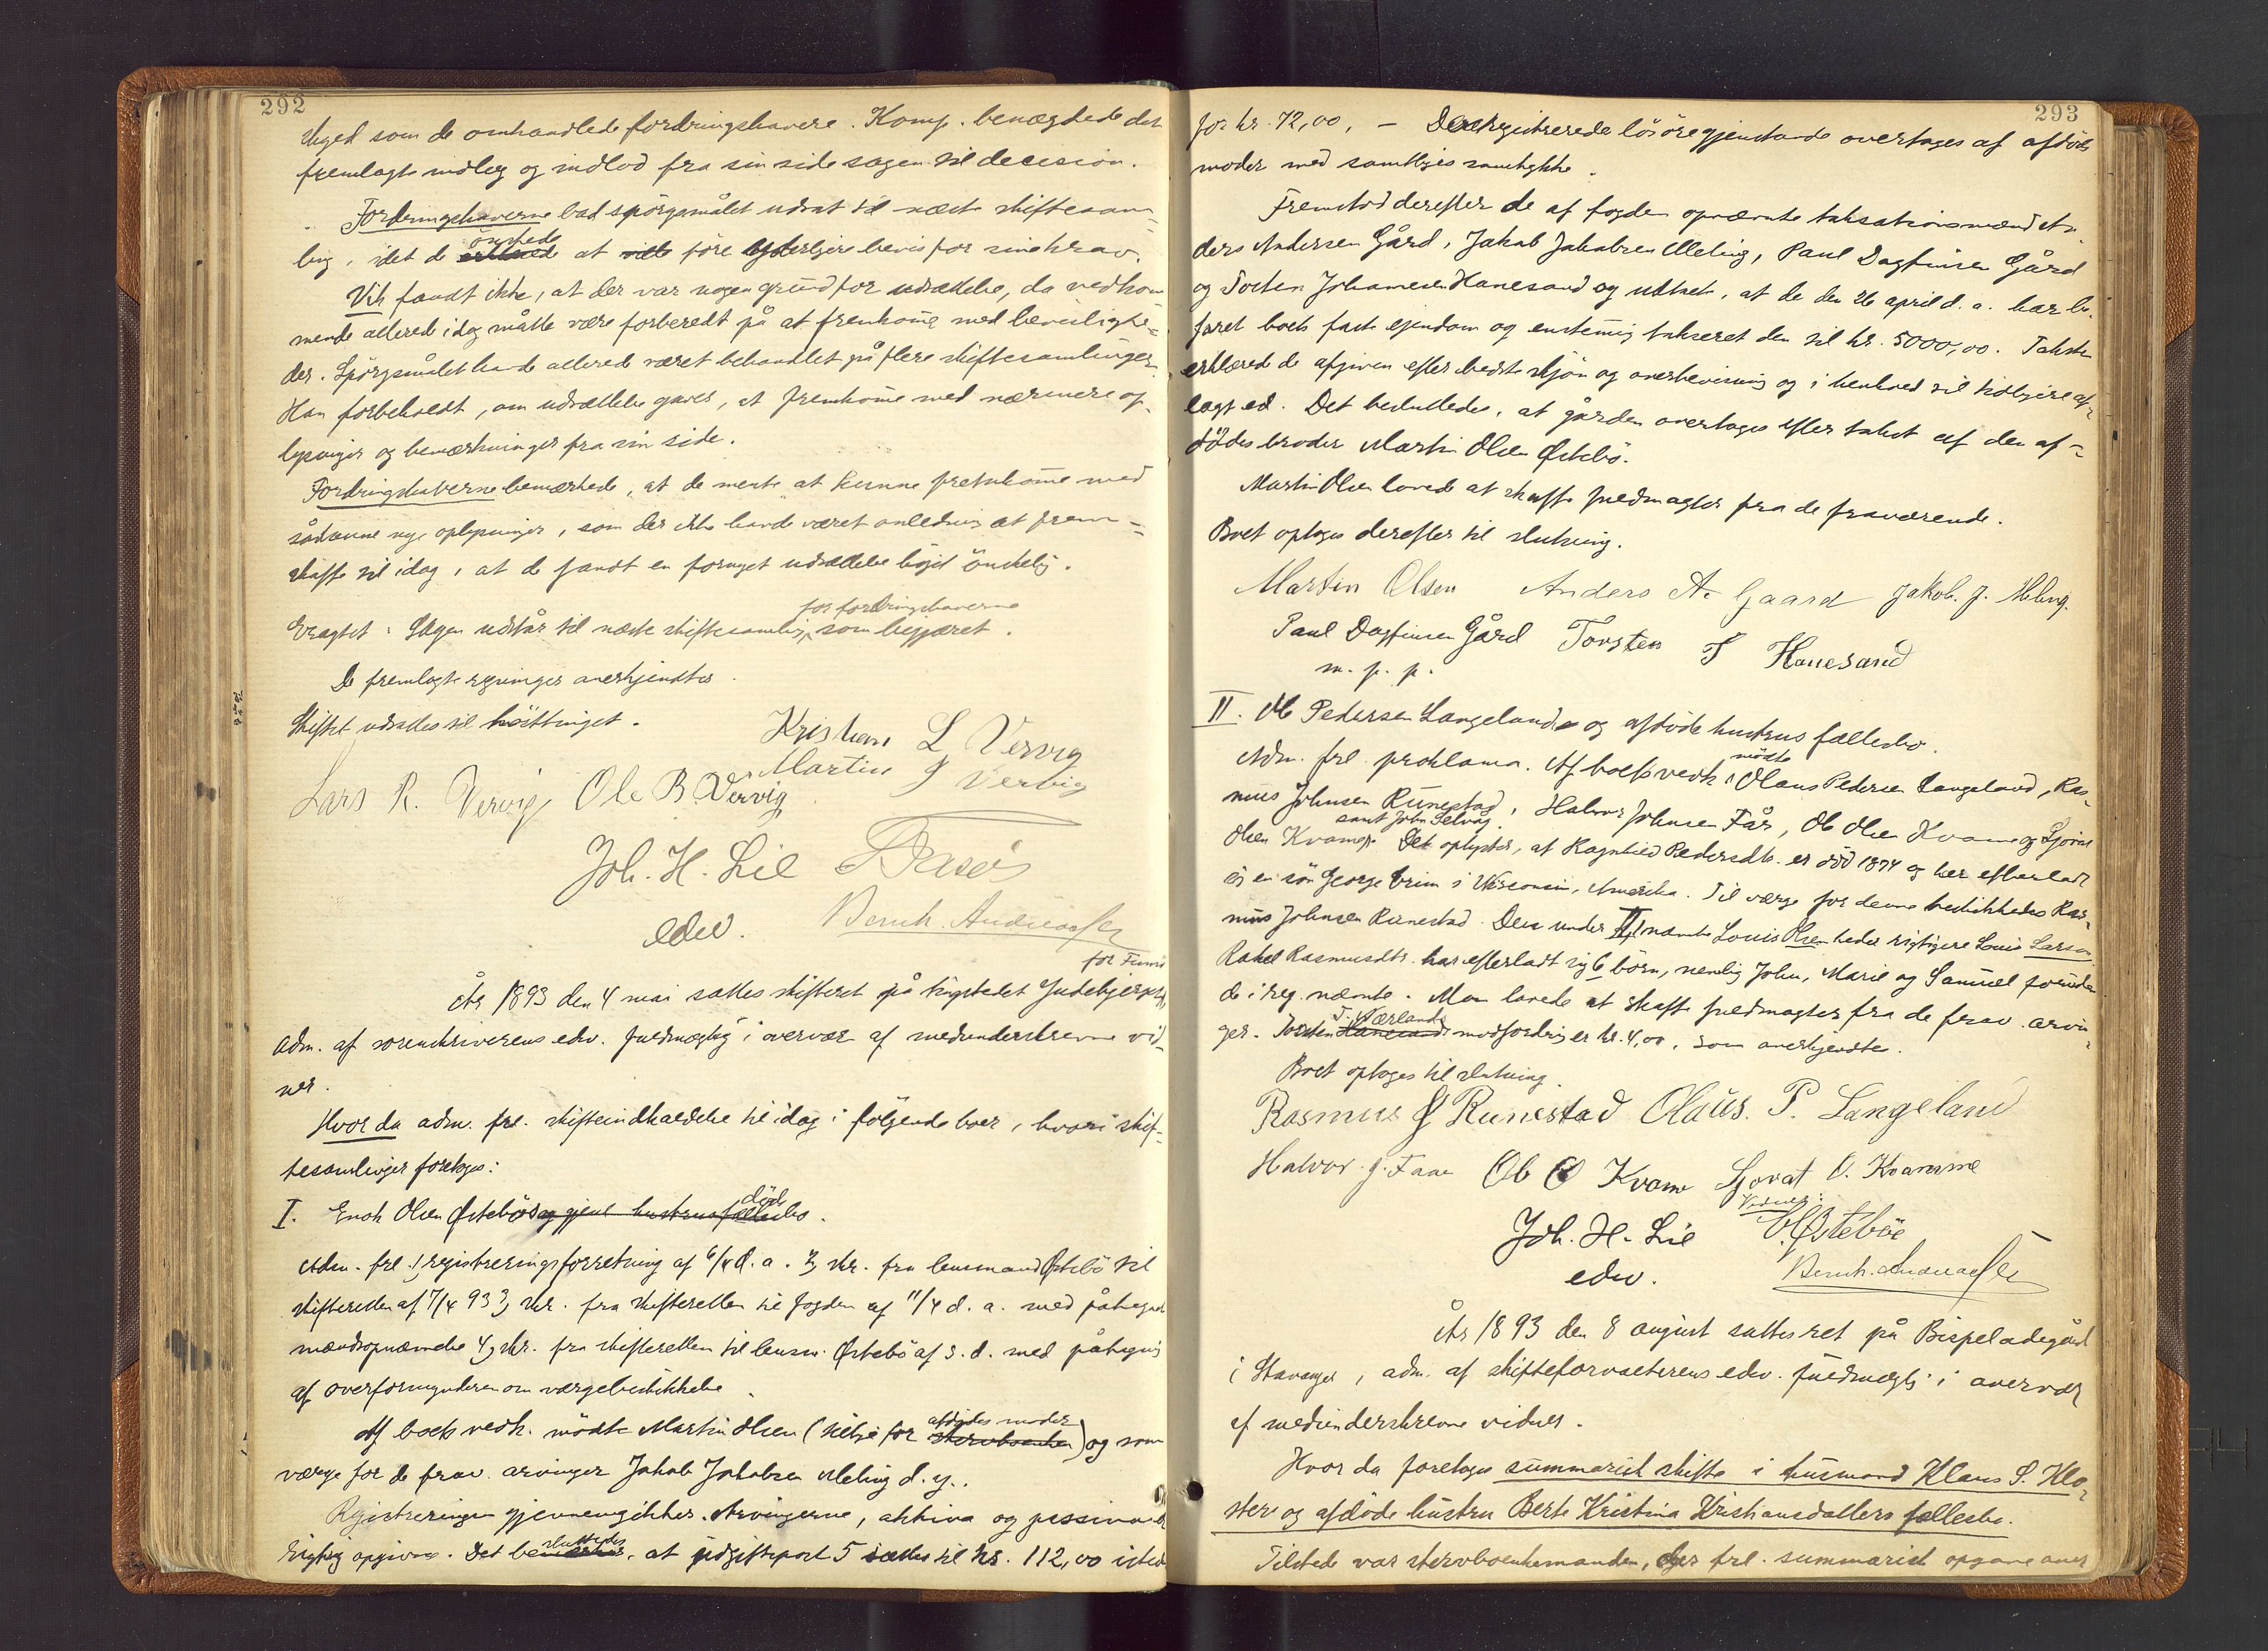 292
skyed som de omhandlede fordringshavere. Komp. benægtede det
fremlagte indlæg og indlod fra sin side sagen til decision.
Fordringshaverne bad spørgsmålet udsat til næste skiftesam-
ling, idet de ønskede at føre yderligere bevis for sine krav.
Vik fandt ikke, at der var nogen grund for udsættelse, da vedkom-
mende allerede idag måtte være forberedt på at fremkomme med bevislighe-
der. Spørgsmålet havde allerede været behandlet på flere skiftesamlinger.
Han forbeholdt, om udsættelse gaves, at fremkomme med nærmere op-
lysninger og bemærkninger fra sin side.
Fordringshaverne bemærkede, at de mente at kunne fremkomme med
sådanne nye oplysninger, som der ikke havde været anledning at frem-
skaffe til idag, at de fandt en fornyet udsættelse høist önskelig.
for fordringshaverne
Eragtet: Sagen udstår til næste skiftesamling som begjæret.
De fremlagte regninger anerkjendtes.
Skiftet udsattes til høsttinget.
Kristian L Vervig
Martin J Vervig
Lars R. Vervig Ole B. Vervig
Joh. H. Lie
edsv. Bernh. Andreassen
for Finn
År 1893 den 4 mai sattes skifteret på tingstedet Judebjerget,
adm. af sorenskriverens edsv. fuldmægtig i overvær af medunderskrevne vid-
ner.
Hvor da adm. frl. skifteindkaldelse til idag i følgende boer, hvori skif-
tesamlinger foretoges:
død
I. Enok Olsen Østebøs og gjenl. hustrus fællesbo.
Adm. frl. 1, registreringsforretning af 6/4 d. a. 2, skr. fra lensmand Østebø til
skifteretten af 7/4 93 3, skr. fra skifteretten til fogden af 11/4 d. a. med påtegnet
mændsopnævnelse 4, skr. fra skifteretten til lensm. Østebø af s. d. med påtegning
af overformynderen om værgebeskikkelse.
Af boets vedk. mødte Martin Olsen (tillige for afdødes moder) og som
værge for de frav. arvinger Jakob Jakobsen Meling d. y..
Registreringen gjennemgikkes. Arvingerne, aktiva og passiva er
rigtig opgivne. Det besluttedes, at udgiftspost 5 sættes til kr. 112,00 istedet
293
for kr. 72,00. – De registrerede løsøregjenstande overtages af afdødes
moder med samtliges samtykke.
Fremstod derefter de af fogden opnævnte taksationsmænd An-
ders Andersen Gård, Jakob Jakobsen Meling, Paul Dagfinsen Gård
og Torsten Johannesen Hanesand og udtalte, at de den 26 april d. a. har be-
faret boets faste eiendom og enstemmig takseret den til kr. 5000,00. Taksten
erklærede de afgiven efter bedste skjøn og overbevisning og i henhold til tidligere af-
lagt ed. Det besluttedes, at gården overtages efter takst af den af-
dødes broder Martin Olsen Østebø.
Martin Olsen lovede at skaffe fuldmagter fra de fraværende.
Boet optoges derefter til slutning.
Martin Olsen Anders A. Gaard Jakob. J. Meling.
Paul Dagfinsen Gård Torsten J Hanesand
m. p. p.
II. Ole Pedersen Langelands og afdøde hustrus fællesbo.
Adm. frl. proklama. Af boets vedk. mødte Olaus Pedersen Langeland, Ras-
mus Johnsen Runestad, Halvor Johnsen Får, Ole Olsen Kvame og Sjovat
samt John Selvåg.
Olsen Kvame. Det oplystes, at Ragnhild Pedersdtr. er død 1874 og har efterladt
sig en søn George Grim i Wisconsin, Amerika. Til værge for denne beskikkedes Ras-
mus Johnsen Runestad. Den under II nævnte Louis Olsen heder rigtigere Louis Larsen.
Rakel Rasmusdtr. har efterladt sig 6 børn, nemlig John, Marie og Samuel foruden
de i reg. nævnte. Man lovede at skaffe fuldmagter fra de frav. arvin-
ger. Torsten T. Værlands modfordring er kr. 4,00, som anerkjendtes.
Boet optoges til slutning.
Rasmus J Runestad Olaus. P. Langeland
Halvor. J. Faae Ole O Kvame Sjovat O. Kvamme
Vidner:
Joh. H. Lie O. Østebøe
edsv. Bernh. Andreassen
År 1893 den 8 august sattes ret på Bispeladegård
i Stavanger, adm. af skifteforvalterens edsv. fuldmægtig i overvær
af medunderskrevne vidner.
Hvor da foretoges summarisk skifte i husmand Klaus S. Klo-
ster og afdøde hustru Berte Kristina Kristiansdatters fællesbo.
Tilstede var stervboenkemanden, der frl. summarisk opgave over